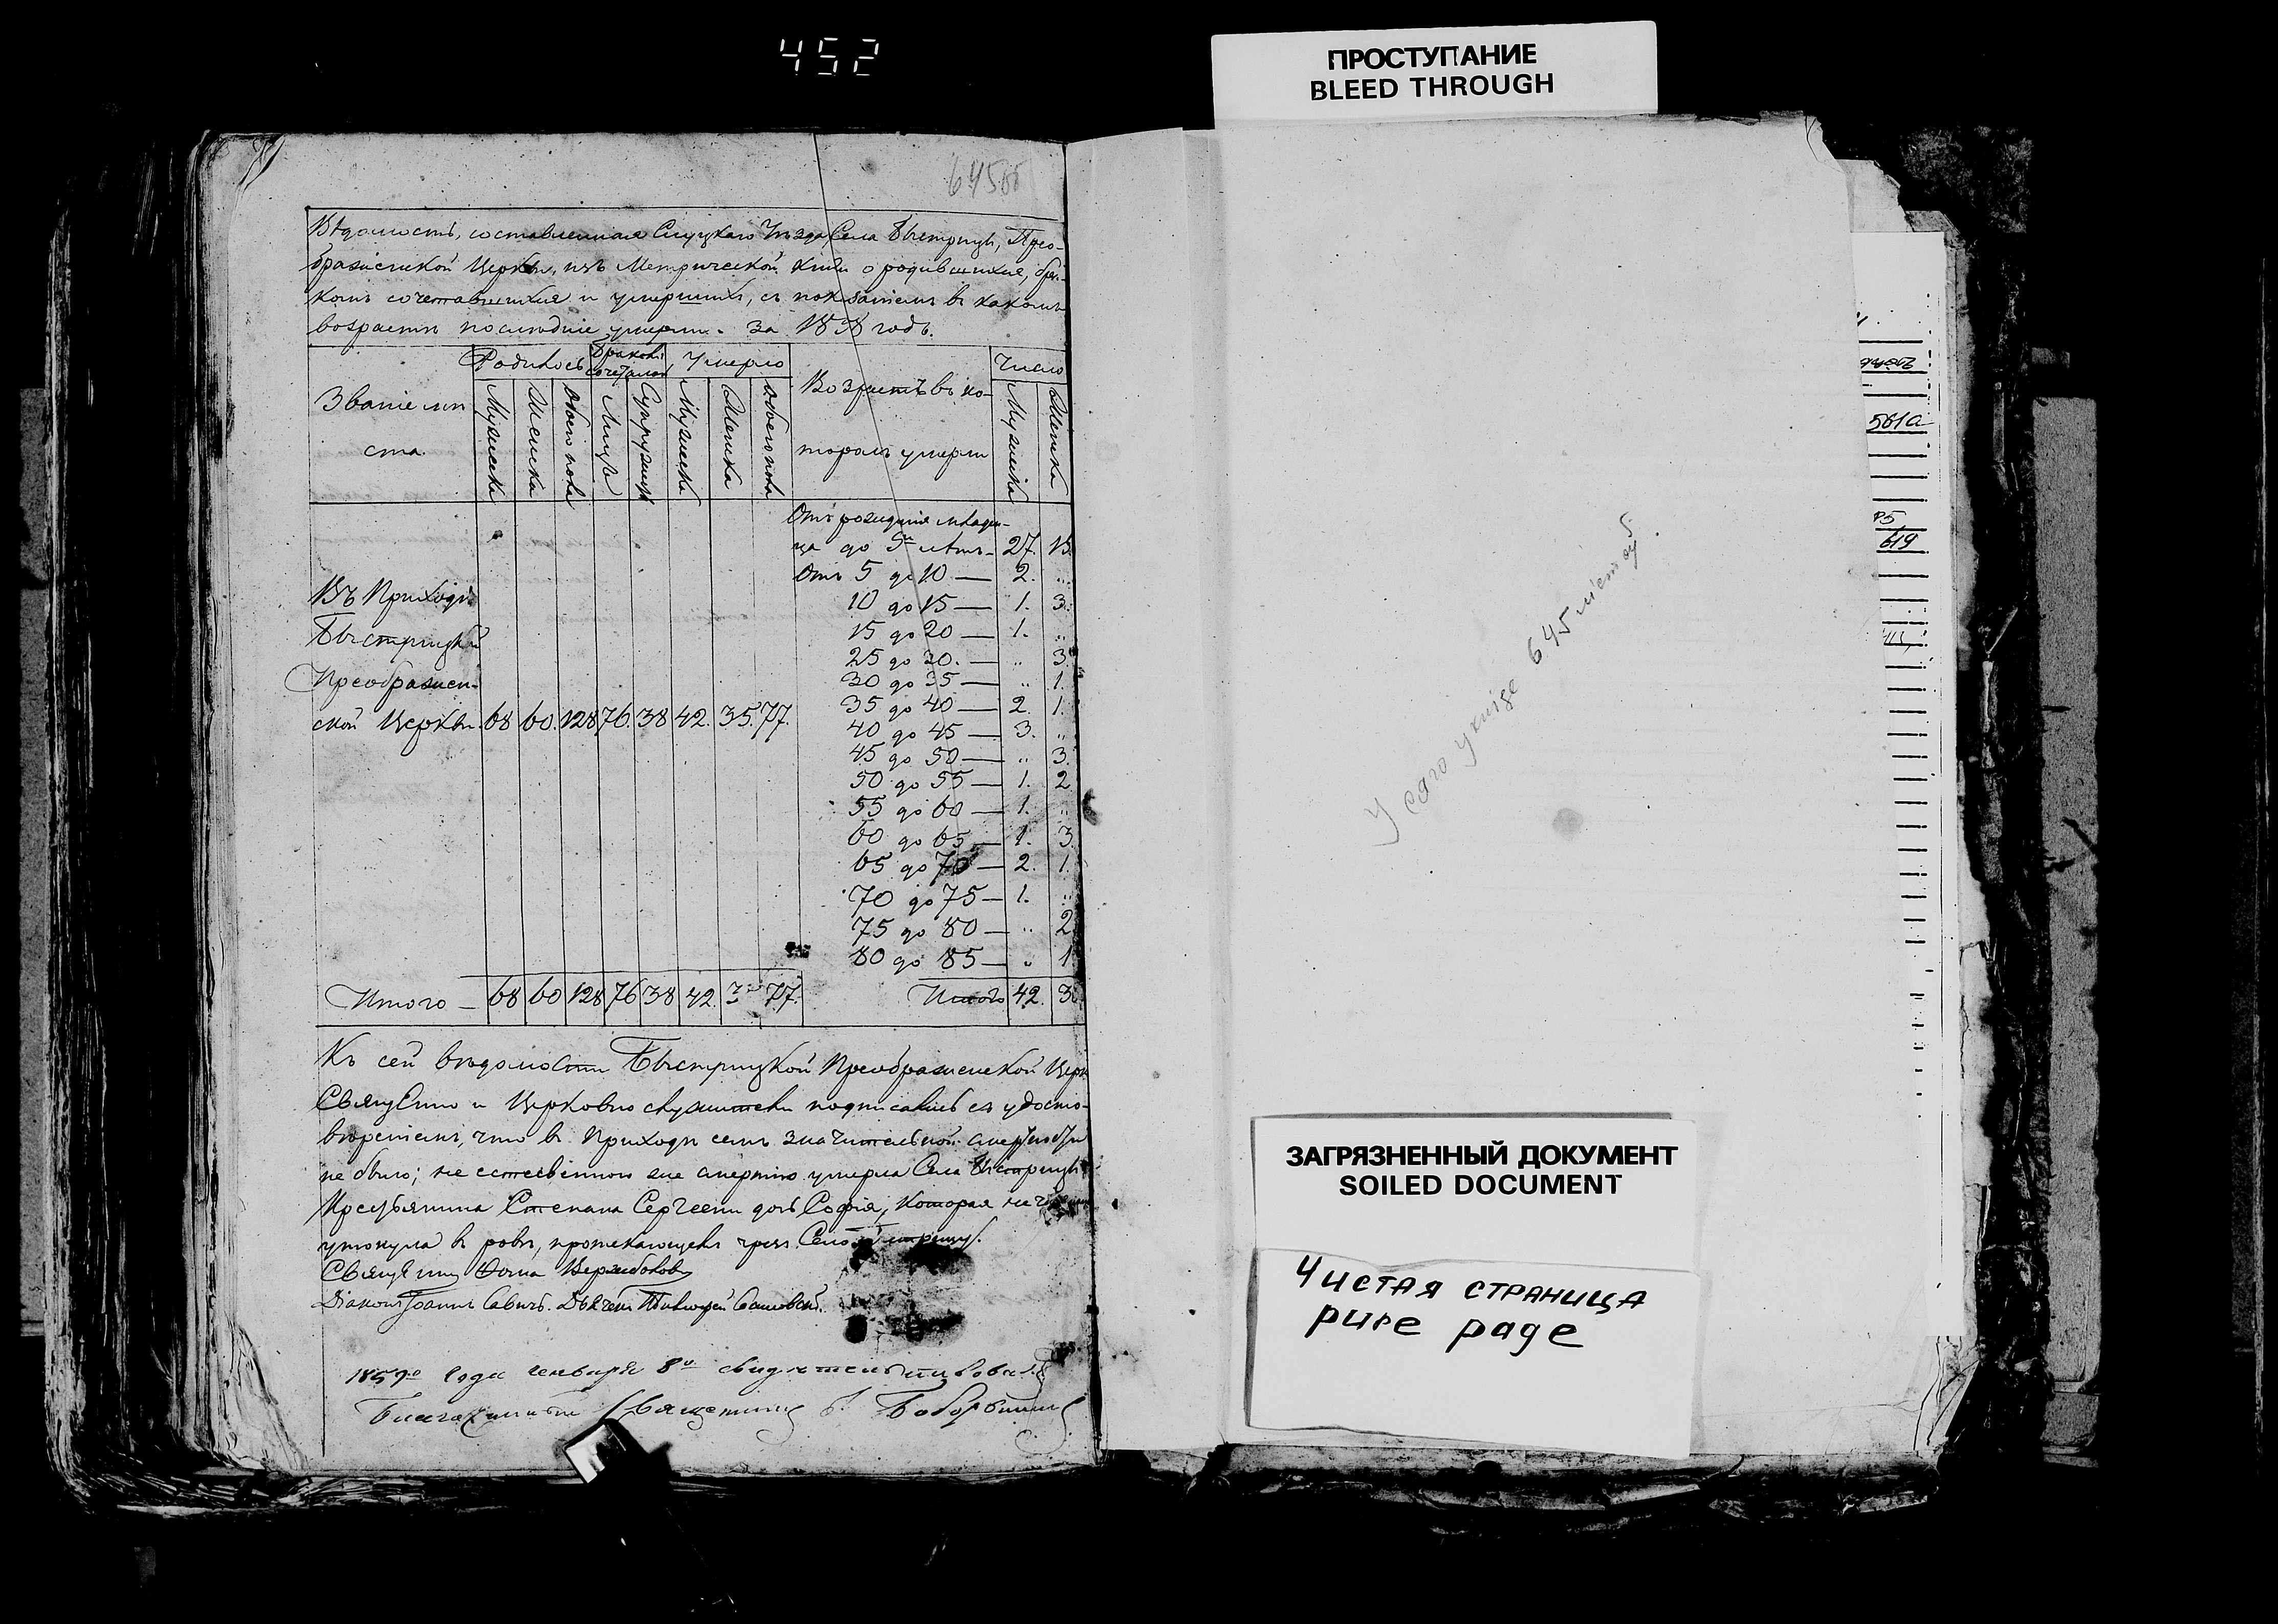 452
ПРОСТУПАНИЕ
BLEED THROUGH
645об
Вѣдомость, составленная Слуцкаго Уѣзда Села Быстрицы, Прео-
браженской Церкви, изъ Метрической Книги о родившихся, бра-
комъ сочетавшихся и умершихъ, съ показаніемъ въ какомъ
возрастѣ послѣдніе умерли. за 1858 годъ.
Званіе мѣ
ста
Родилось
Бракомъ сочеталось
Умерло
Возрастъ въ ко-
торомъ умерли
Число
Мужеска Женска Обоего пола Лицъ Супружествъ Мужеска Женска Обоего пола Мужеска Женска
Отъ рожденія младен-
ца до 5ти лѣтъ - 27. 15.
Отъ 5 до 10 — 2. "
10 до 15 — 1. 3.
15 до 20 — 1. "
25 до 30. — " 3.
30 до 35 — " 1.
35 до 40 — 2. 1.
40 до 45 — 3. "
45 до 50 — " 3.
50 до 55 — 1. 2
55 до 60 — 1. "
60 до 65 — 1. 3
65 до 70 — 2. 1.
70 до 75 — 1. "
75 до 80 — " 2
80 до 85 — " 1
Въ Приходѣ
Быстрицкой
Преображен-
ской Церкви. 68 60. 128 76. 38 42. 35. 77.
Итого — 68 60 128 76 38 42. 3 77.
Итого 42. 3
Къ сей вѣдомости Быстрицкой Преображенской Церк
Священно и Церковно служители подписались съ удосто-
вѣреніемъ, что въ Приходѣ семъ значительной смертности
не было; не естественною же смертію умерла Села Быстрицы
Крестьянина Степана Сергеева дочь Софія, которая
утонула въ ровѣ, протекающемъ чрезъ Село Быстрицу.
Священникъ Фома Вержболовъ
Діаконъ Іоаннъ Савичъ. Дьячекъ
1859го года генваря 8го свидѣтельствовалъ
Благочинный Священникъ
У сяго укнізе 645 лістоў.
561а
619
ЗАГРЯЗНЕННЫЙ ДОКУМЕНТ
SOILED DOCUMENT
Чистая страница
pure page